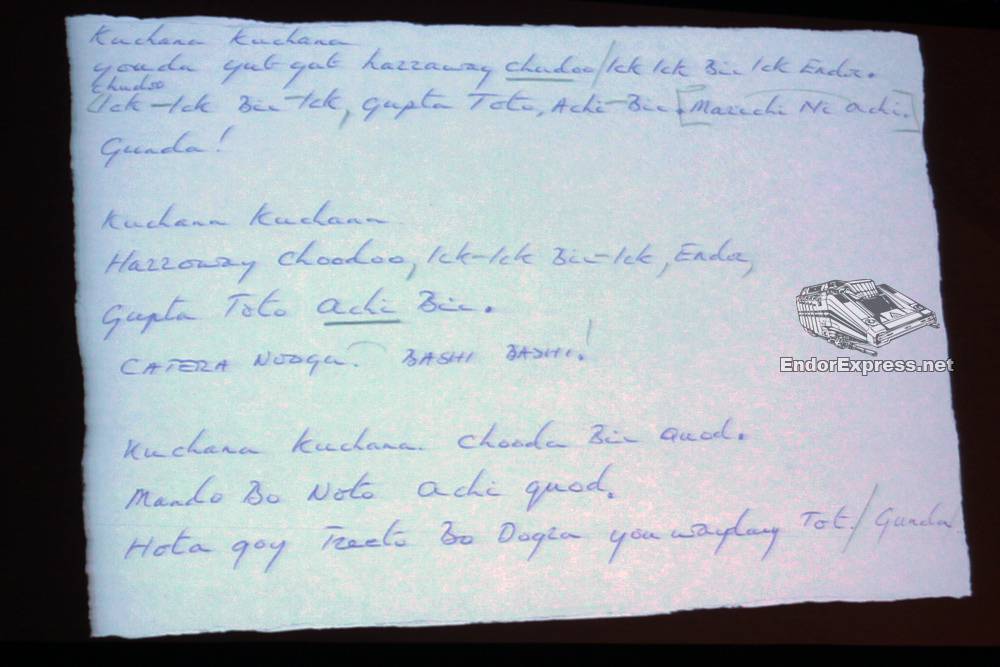 Kuchana Kuchana
youda gut gut hazzaway chudoo/Ick Ick Bir Ick Endor.
Chudoo
Ick-Ick Bir-Ick, Gupta Toto, Achi-Bir. [Marichi Ni Achi.]
Gunda!
Kuchana Kuchana
Hazzoway Choodoo, Ick-Ick Bir-Ick, Endor,
Gupta Toto Achi Bir.
CATERA NOOGU. BASHI BASHI!
EndorExpress.net
Kuchana Kuchana. Chooda Bir Quod.
Mando Bo Noto Achi quod.
Hota goy Treeto Bo Dogra you wayday Tot./Gunda